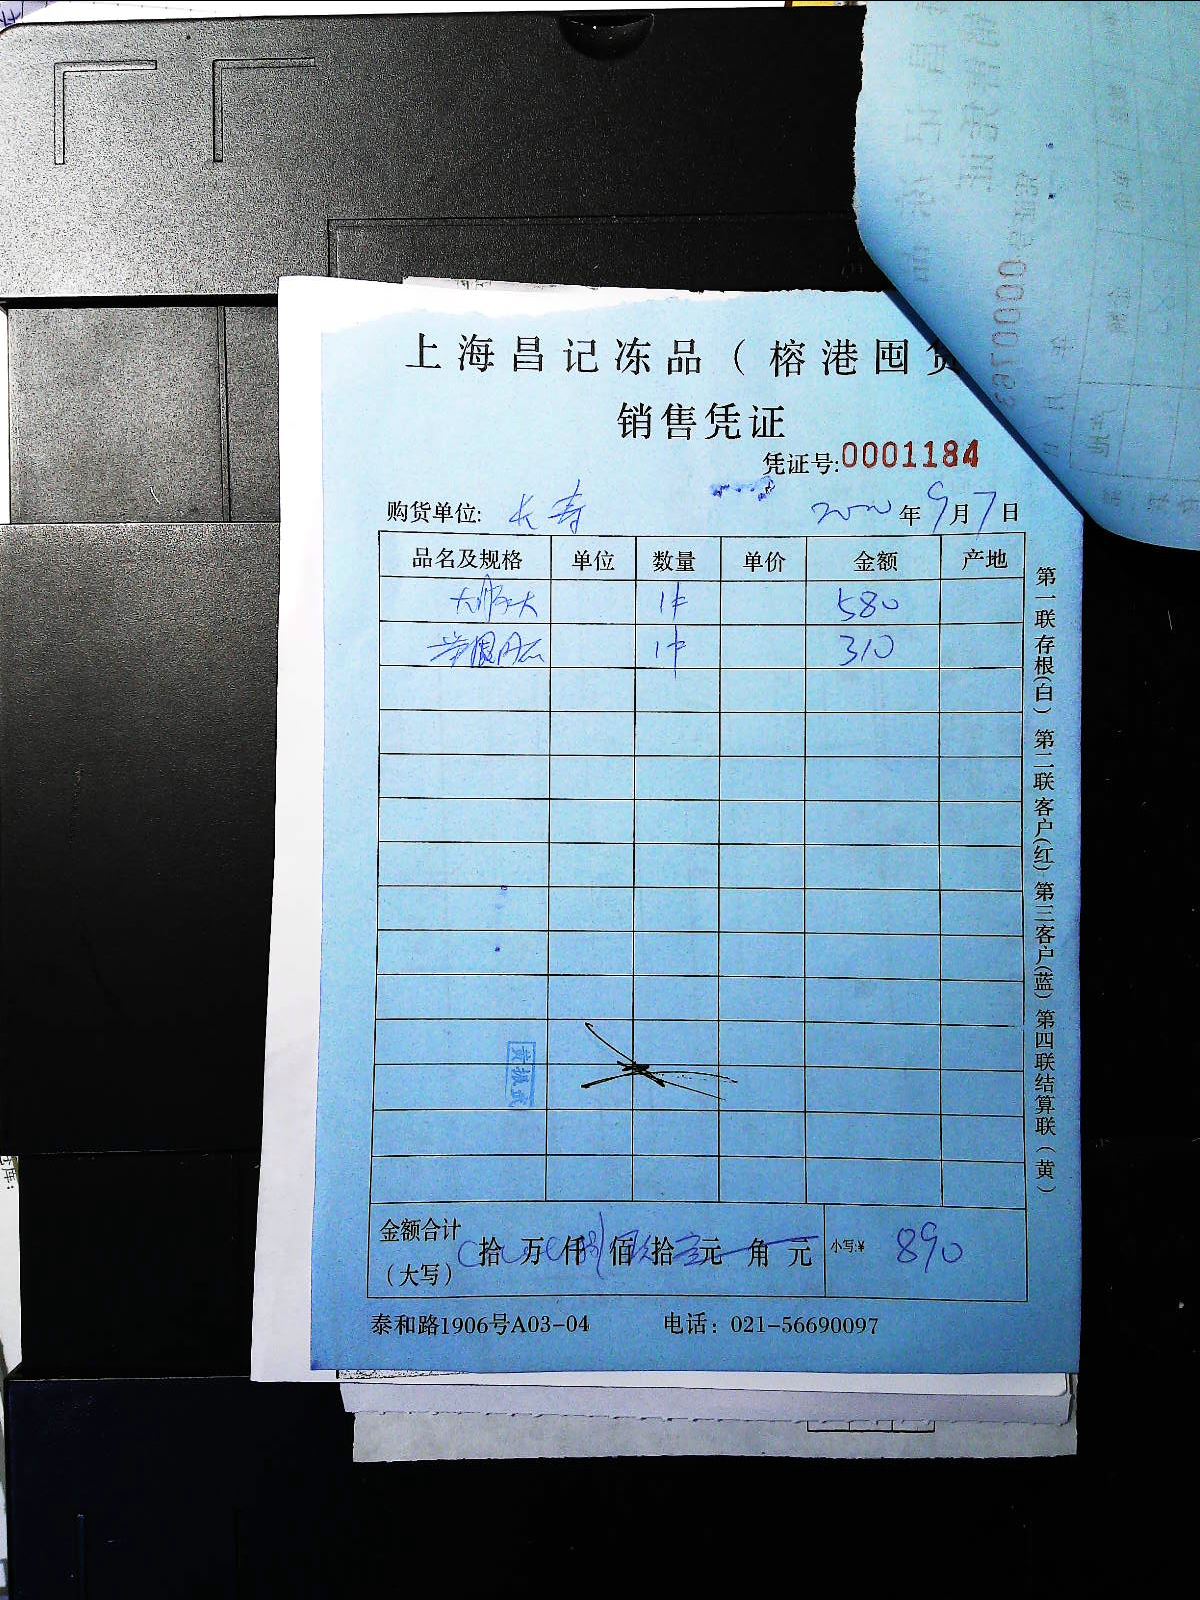 上海昌记冻品（榕港囤货
销售凭证
凭证号:0001184
购货单位: 长寿 2020年9月7日
品名及规格 单位 数量 单价 金额 产地
1件 580
1件 310
金额合计
（大写） 拾 万 仟 捌 佰 玖 拾 元 角 元 小写:¥ 890
泰和路1906号A03-04 电话: 021-56690097
第一联存根(白) 第二联客户(红) 第三客户(蓝) 第四联结算联(黄)